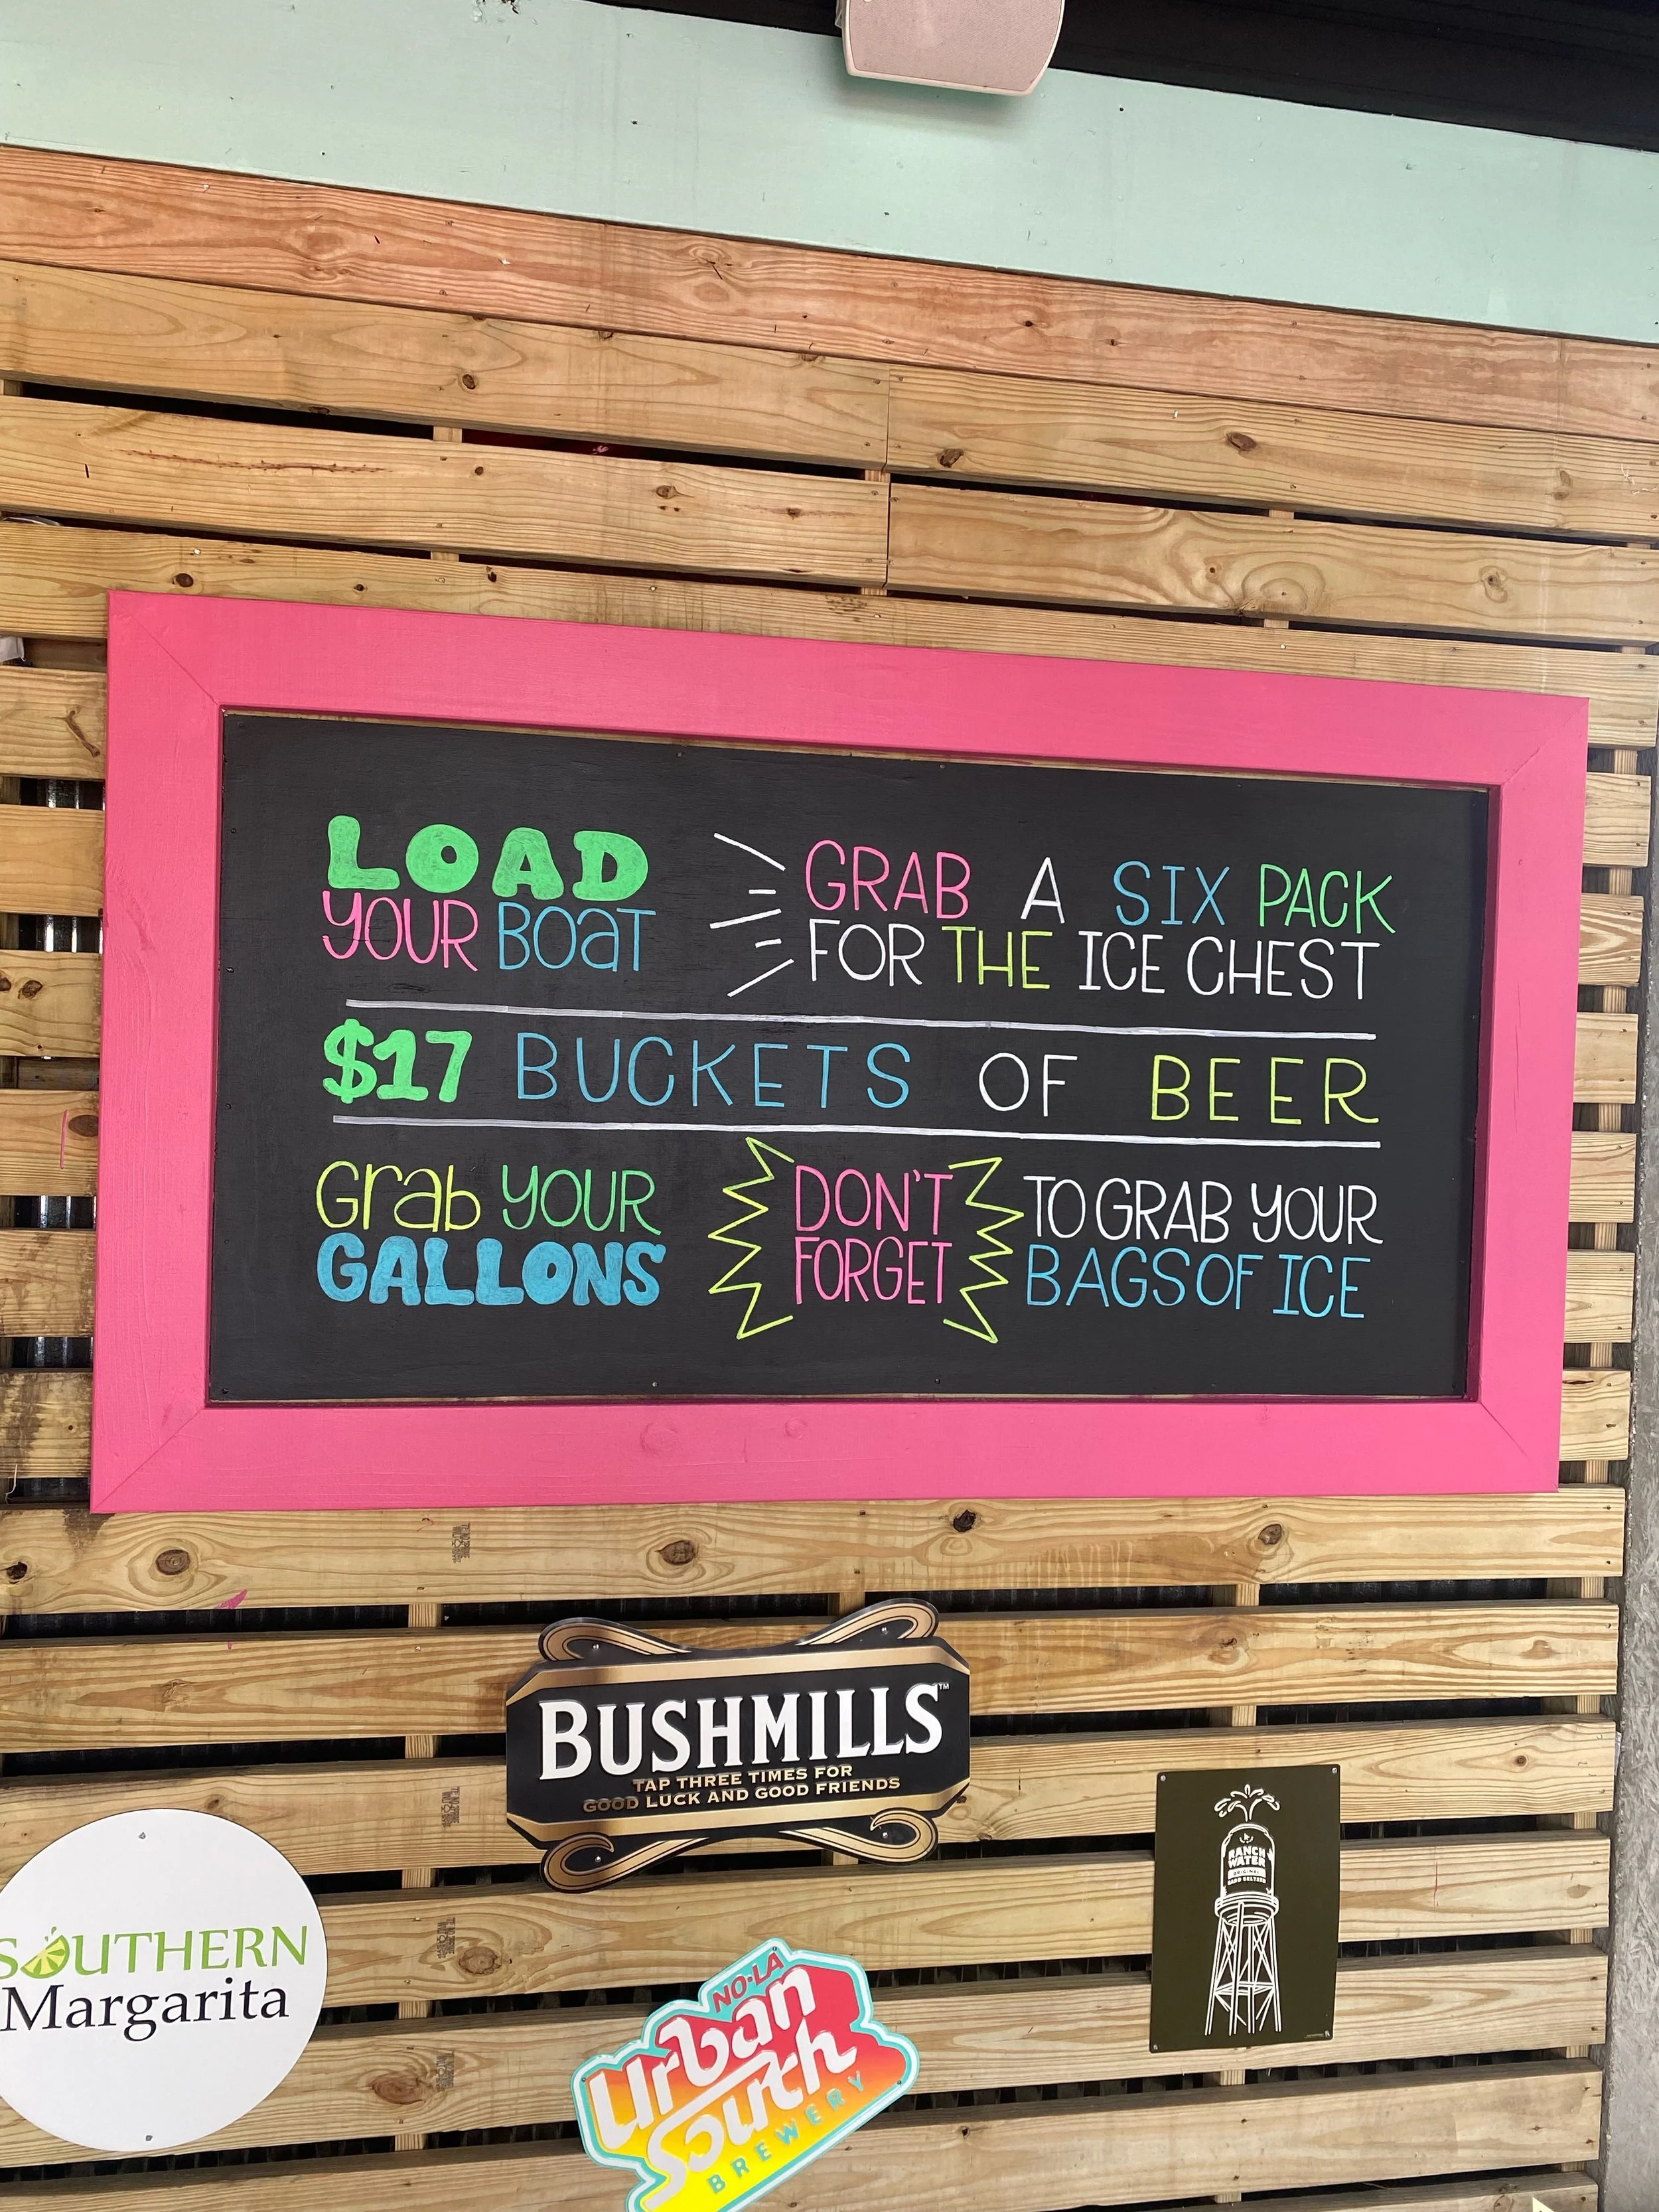 LOAD
YOUR BOAT
GRAB A SIX PACK
FOR THE ICE CHEST
$17 BUCKETS OF BEER
Grab YOUR
GALLONS
DON'T
FORGET
TO GRAB YOUR
BAGS OF ICE
BUSHMILLS™
TAP THREE TIMES FOR
GOOD LUCK AND GOOD FRIENDS
RANCH
WATER
ORIGINAL
HARD SELTZER
SOUTHERN
Margarita
NO·LA
Urban
South
BREWERY